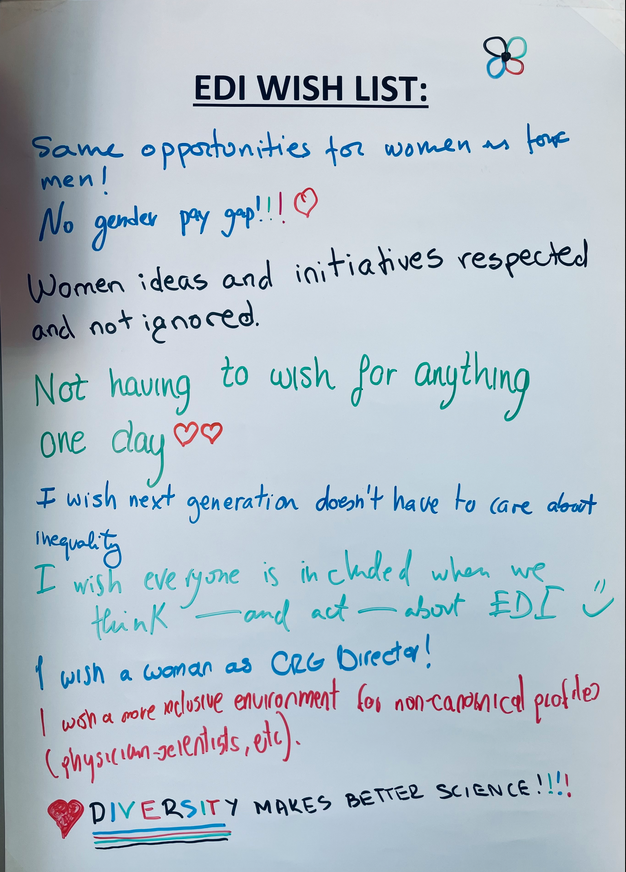 EDI WISH LIST:
Same opportunities for women as for
men!
No gender pay gap!!!
Women ideas and initiatives respected
and not ignored.
Not having to wish for anything
one day
I wish next generation doesn't have to care about
inequality
I wish everyone is included when we
think — and act — about EDI
I wish a woman as CRG Director!
I wish a more inclusive environment for non-canonical profiles
(physician-scientists, etc).
DIVERSITY MAKES BETTER SCIENCE!!!!